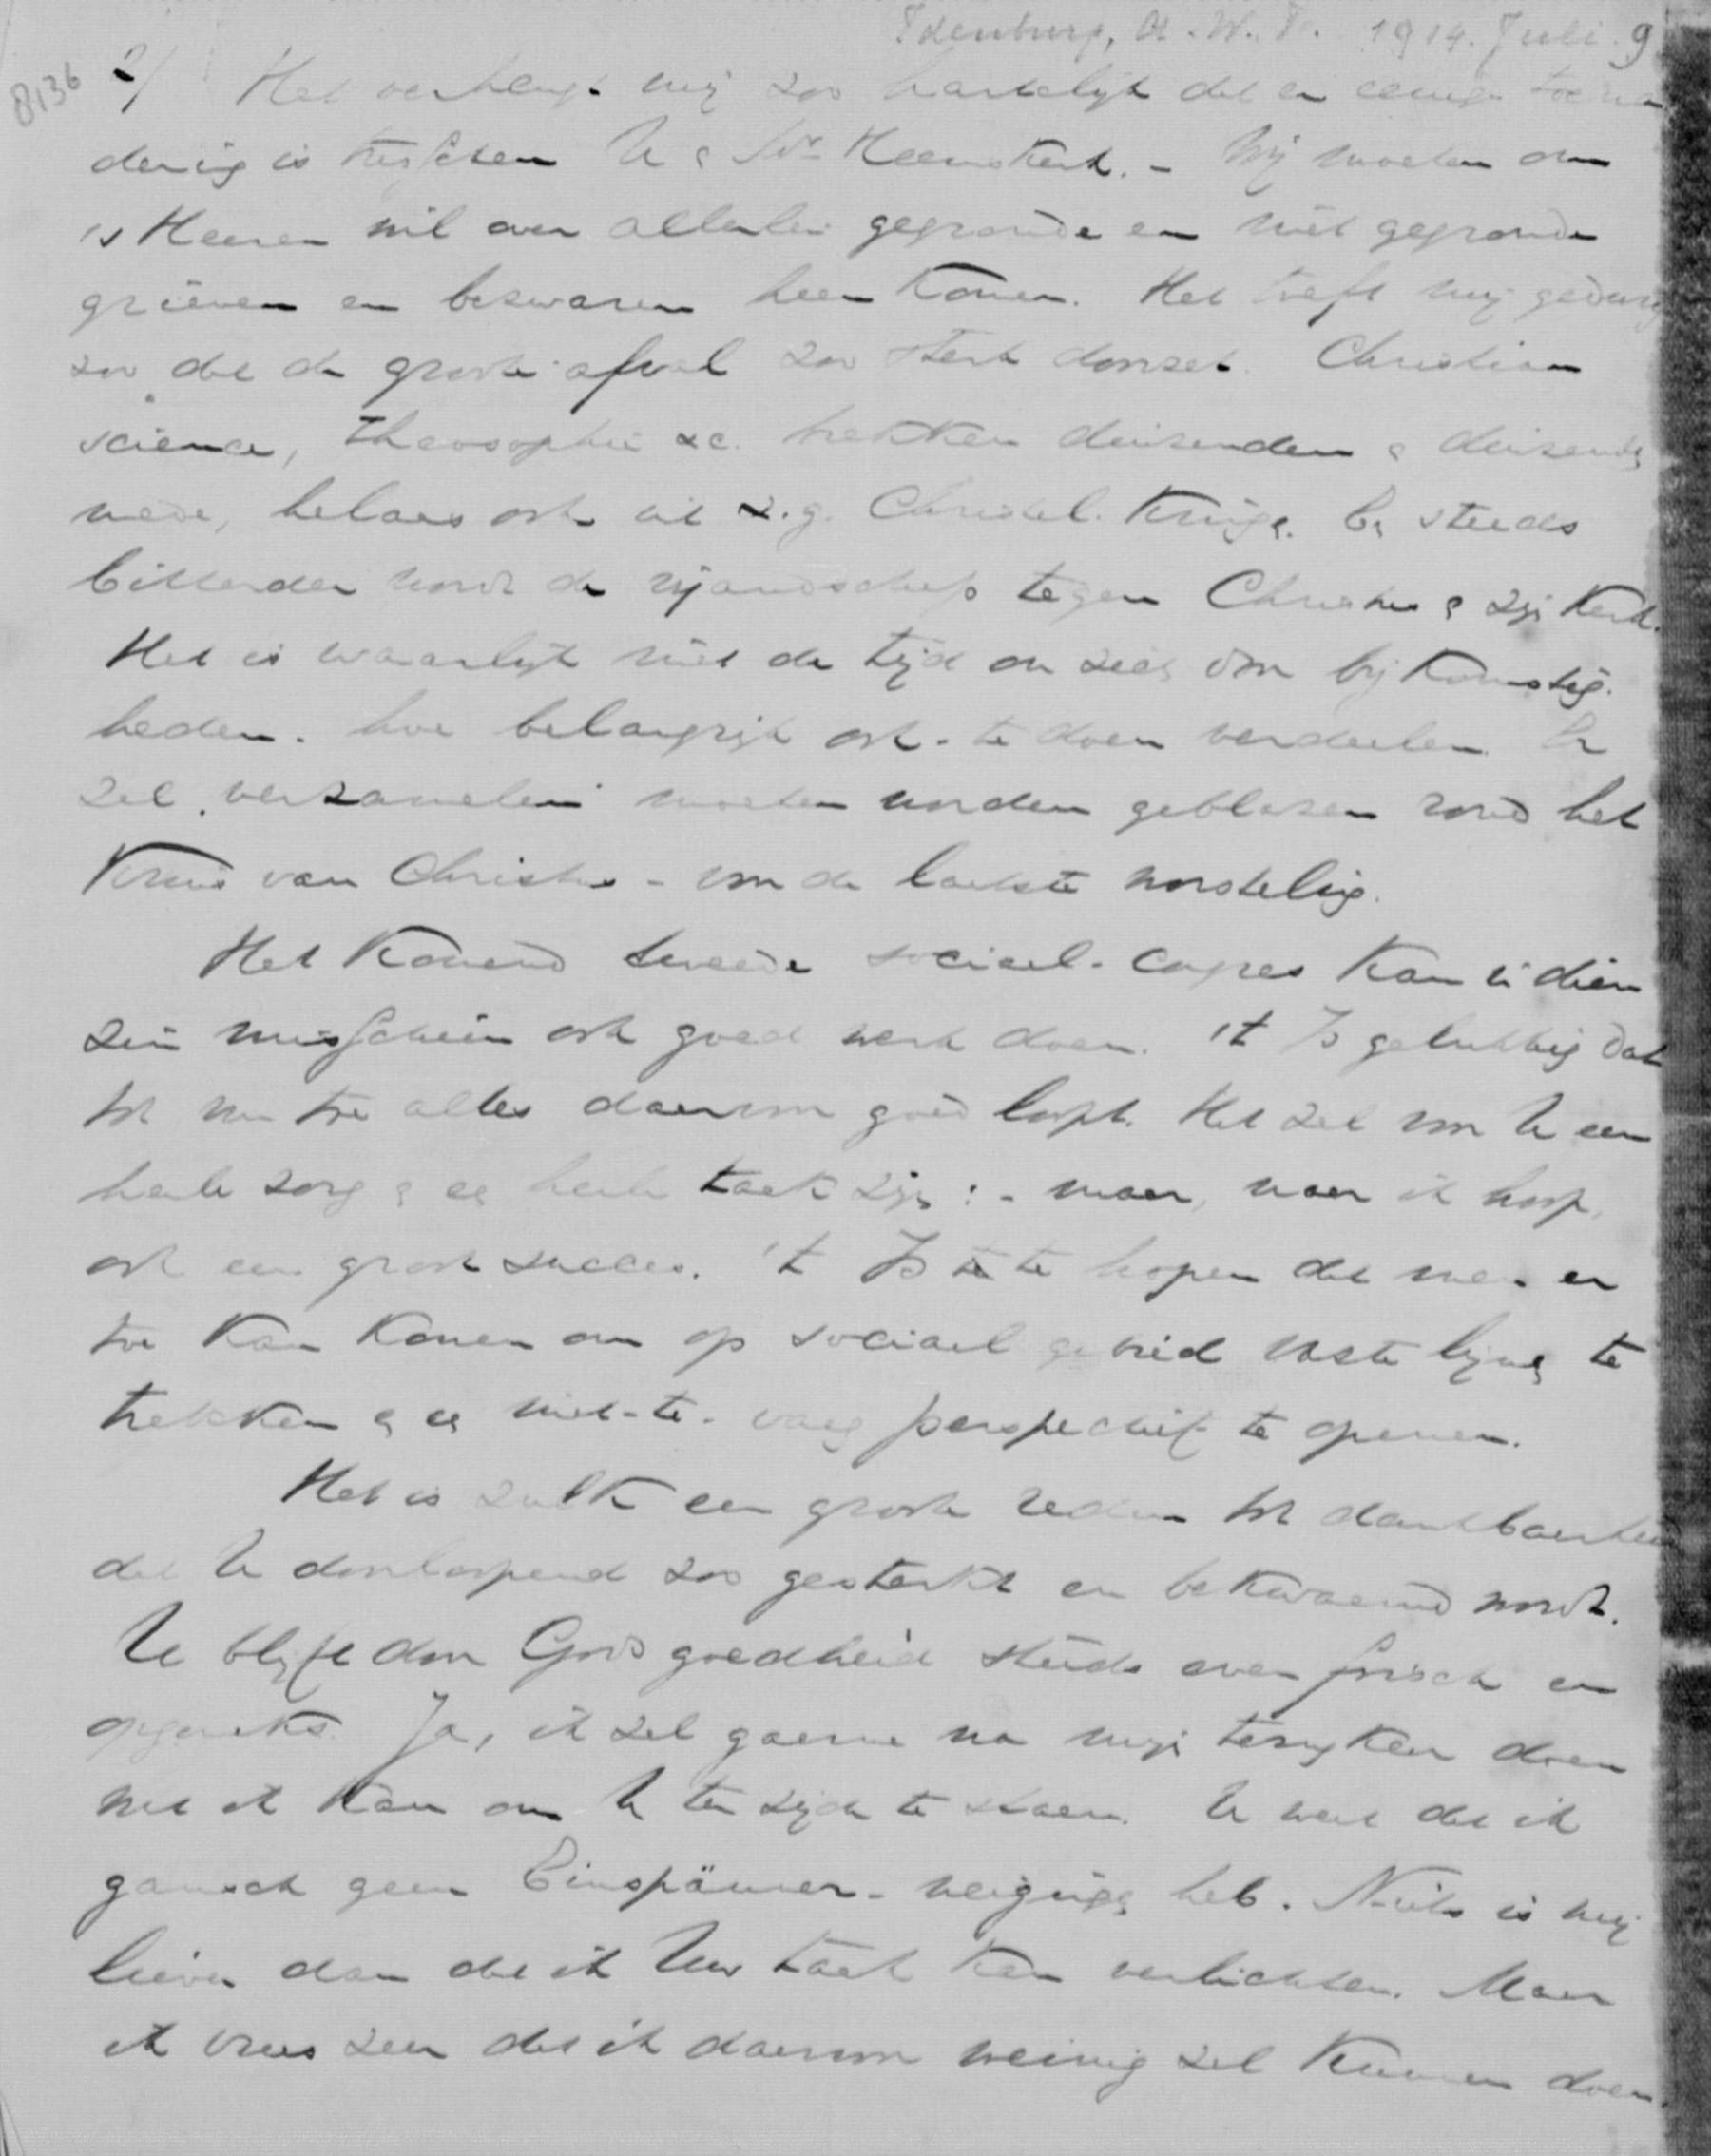 Idenburg, A.W.F. 1914. Juli 9
8136
2/ Het verheugt mij zoo hartelijk dat er eenige toena
dering is tusschen U & Mr Heemskerk. - Wij moeten om
's Heeren wil over allerlei gegronde en niet gegronde
grieven en bezwaren heen komen. Het treft mij gedurig
zoo dat de groote afval zoo sterk doorzet. Christian
science, theosophie &c. trekken duizenden & duizenden
mede, helaas ook uit z.g. Christel. kringen. En steeds
bitterder wordt de vijandschap tegen Christus & zijn Kerk.
Het is waarlijk niet de tijd om zich door bijkomstig-
heden - hoe belangrijk ook - te doen verdeelen. Er
zal "verzamelen" moeten worden geblazen rond het
Kruis van Christus - voor de laatste worsteling.
Het komend tweede sociaal-congres kan in dien
zin misschien ook goed werk doen. 't Is gelukkig dat
tot nu toe alles daarvoor goed loopt. Het zal voor U een
heele zorg & een heele taak zijn: - maar, naar ik hoop,
ook een groot succes. 't Is te hopen dat men er
toe kan komen om op sociaal gebied vaste lijnen te
trekken & een niet-te-vaag perspectief te openen.
Het is zulk een groote reden tot dankbaarheid
dat U doorloopend zoo gesterkt en bekwaamd wordt.
U blijft door Gods goedheid steeds even frisch en
opgewekt. Ja, ik zal gaarne na mijn terugkeer doen
wat ik kan om U ter zijde te staan. U weet dat ik
gansch geen Einspänner-neigingen heb. Niets is mij
liever dan dat ik Uw taak kan verlichten. Maar
ik vrees zeer dat ik daarvoor weinig zal kunnen doen.